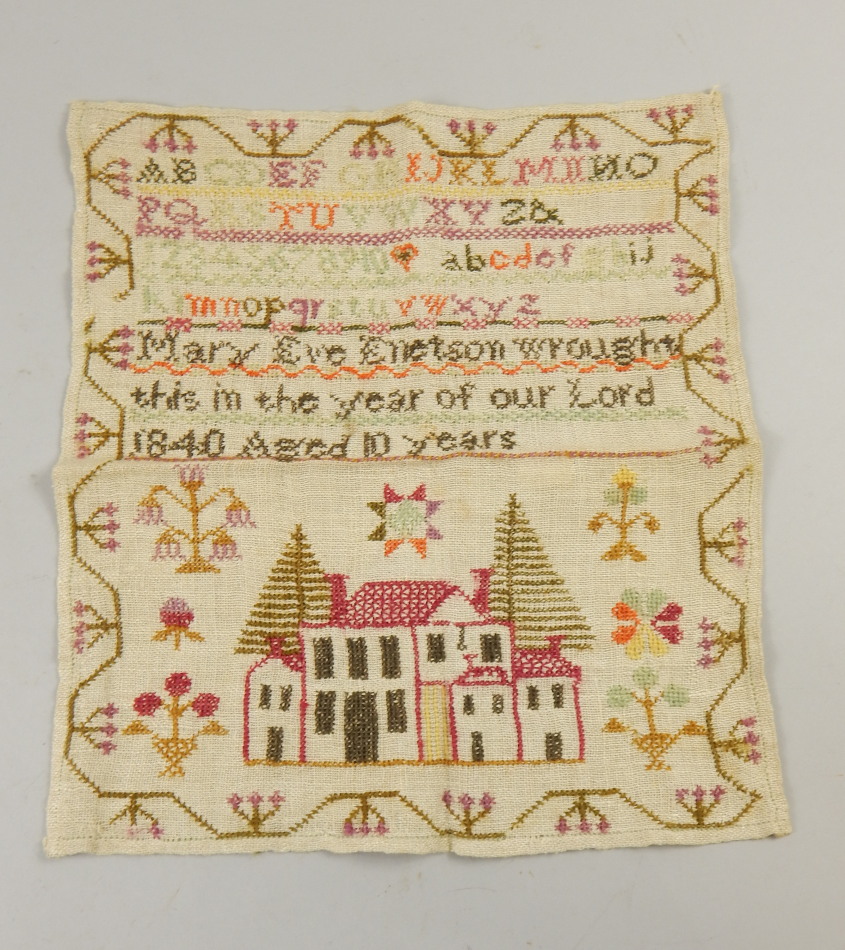 ABCDEF GHIJKLMNNO
PQRSTUVWXYZ&
12345678910 abcdefghij
klmnopqrstuvwxyz
Mary Eve Enetson wrought
this in the year of our Lord
1840 Aged 10 years